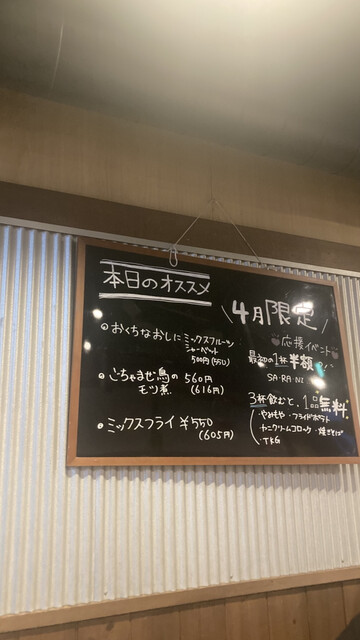 本日のオススメ
・おくちなおしに ミックスフルーツ
シャーベット
500円(550)
・ごちゃまぜ鳥の 560円
モツ煮 (616円)
・ミックスフライ ¥550
(605円)
4月限定
応援イベント
最初の1杯半額
SA・RA・NI
3杯飲むと、1品無料
・やみもや・フライドポテト
・カニクリームコロッケ・焼きそば
・TKG